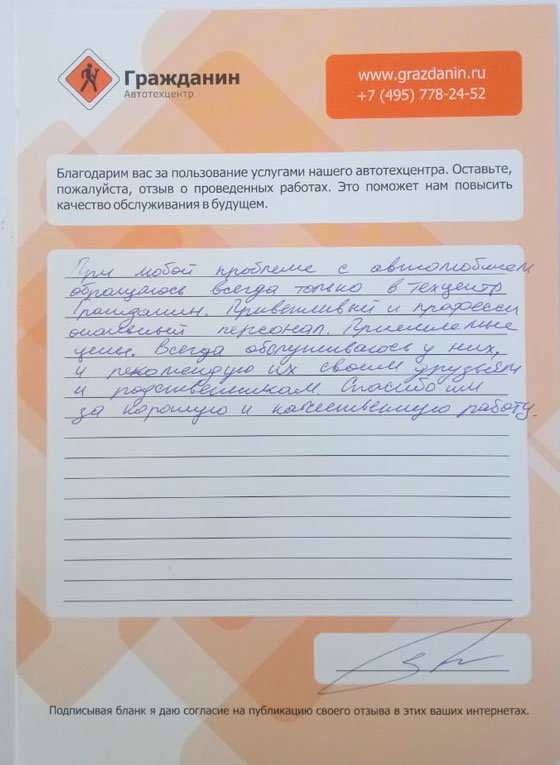 Гражданин
Автотехцентр
www.grazdanin.ru
+7 (495) 778-24-52
Благодарим вас за пользование услугами нашего автотехцентра. Оставьте,
пожалуйста, отзыв о проведенных работах. Это поможет нам повысить
качество обслуживания в будущем.
При любой проблеме с автомобилем
обращаюсь всегда только в техцентр
Гражданин. Приветливый и професси
ональный персонал. Приемлемые
цены. Всегда обслуживаюсь у них,
и рекомендую их своим друзьям
и родственникам. Спасибо им
за хорошую и качественную работу.
Подписывая бланк я даю согласие на публикацию своего отзыва в этих ваших интернетах.